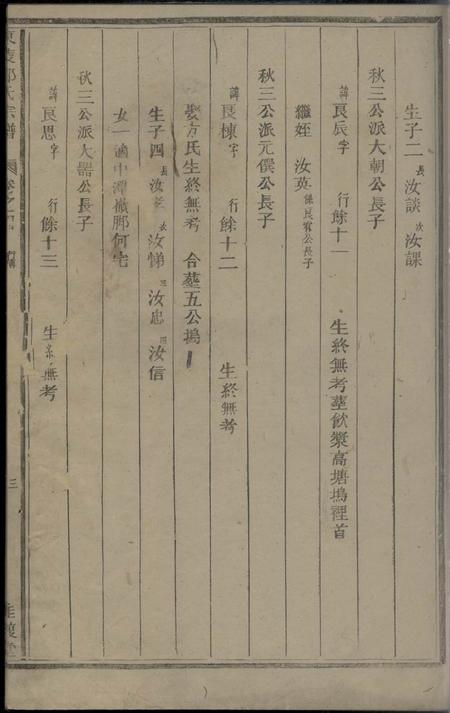 生子二 長汝談 次汝課
秋三公派大朝公長子
諱良辰字 行餘十一 生終無考塟飲漿高塘塢裡首
繼姪 汝英 係良宥公長子
秋三公派元僎公長子
諱良棟字 行餘十二 生終無考
娶方氏生終無考 合塟五公塢
生子四 長汝孝 次汝悌 三汝忠 四汝信
女一適中潭
秋三公派大器公長子
諱良思字 行餘十三 生終無考
氏宗譜
三